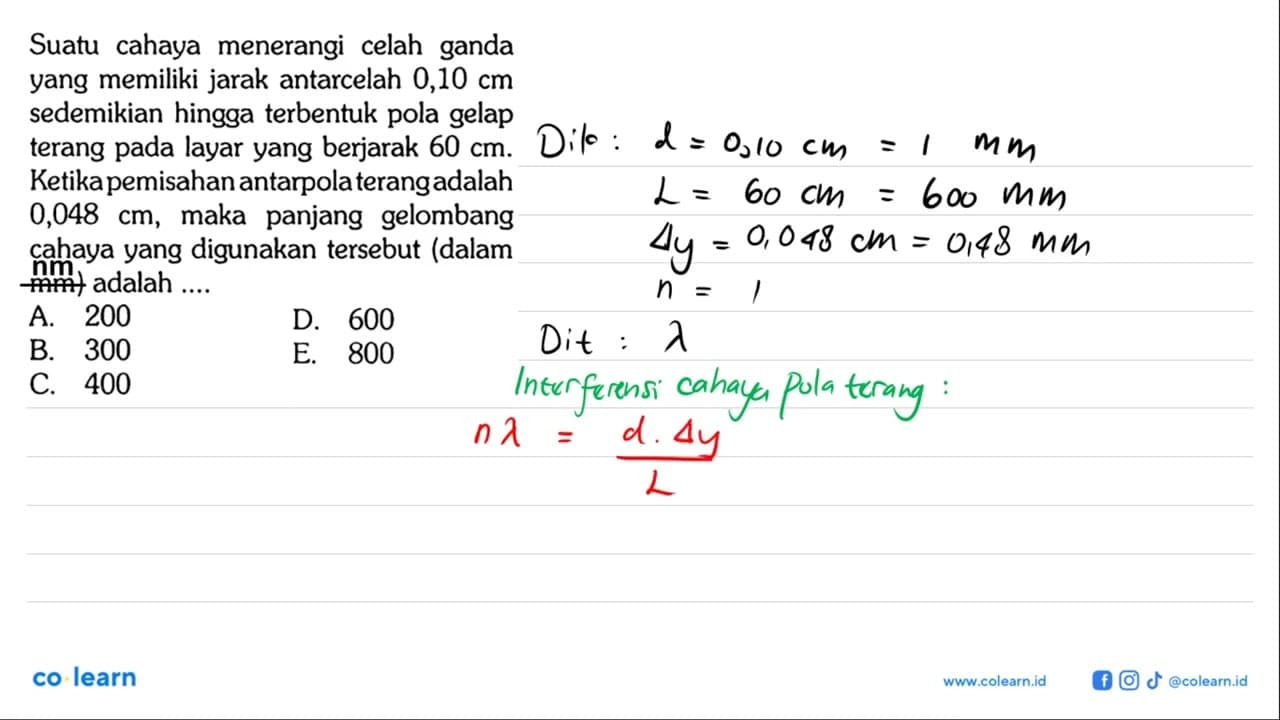 Suatu cahaya menerangi celah ganda
yang memiliki jarak antarcelah 0,10 cm
sedemikian hingga terbentuk pola gelap
terang pada layar yang berjarak 60 cm.
Ketika pemisahan antarpola terang adalah
0,048 cm, maka panjang gelombang
cahaya yang digunakan tersebut (dalam
nm
mm) adalah ....
A. 200
B. 300
C. 400
D. 600
E. 800
Dik : d = 0,10 cm = 1 mm
L = 60 cm = 600 mm
Δy = 0,048 cm = 0,48 mm
n = 1
Dit : λ
Interferensi cahaya pola terang :
nλ = d . Δy
L
co learn
www.colearn.id
@colearn.id